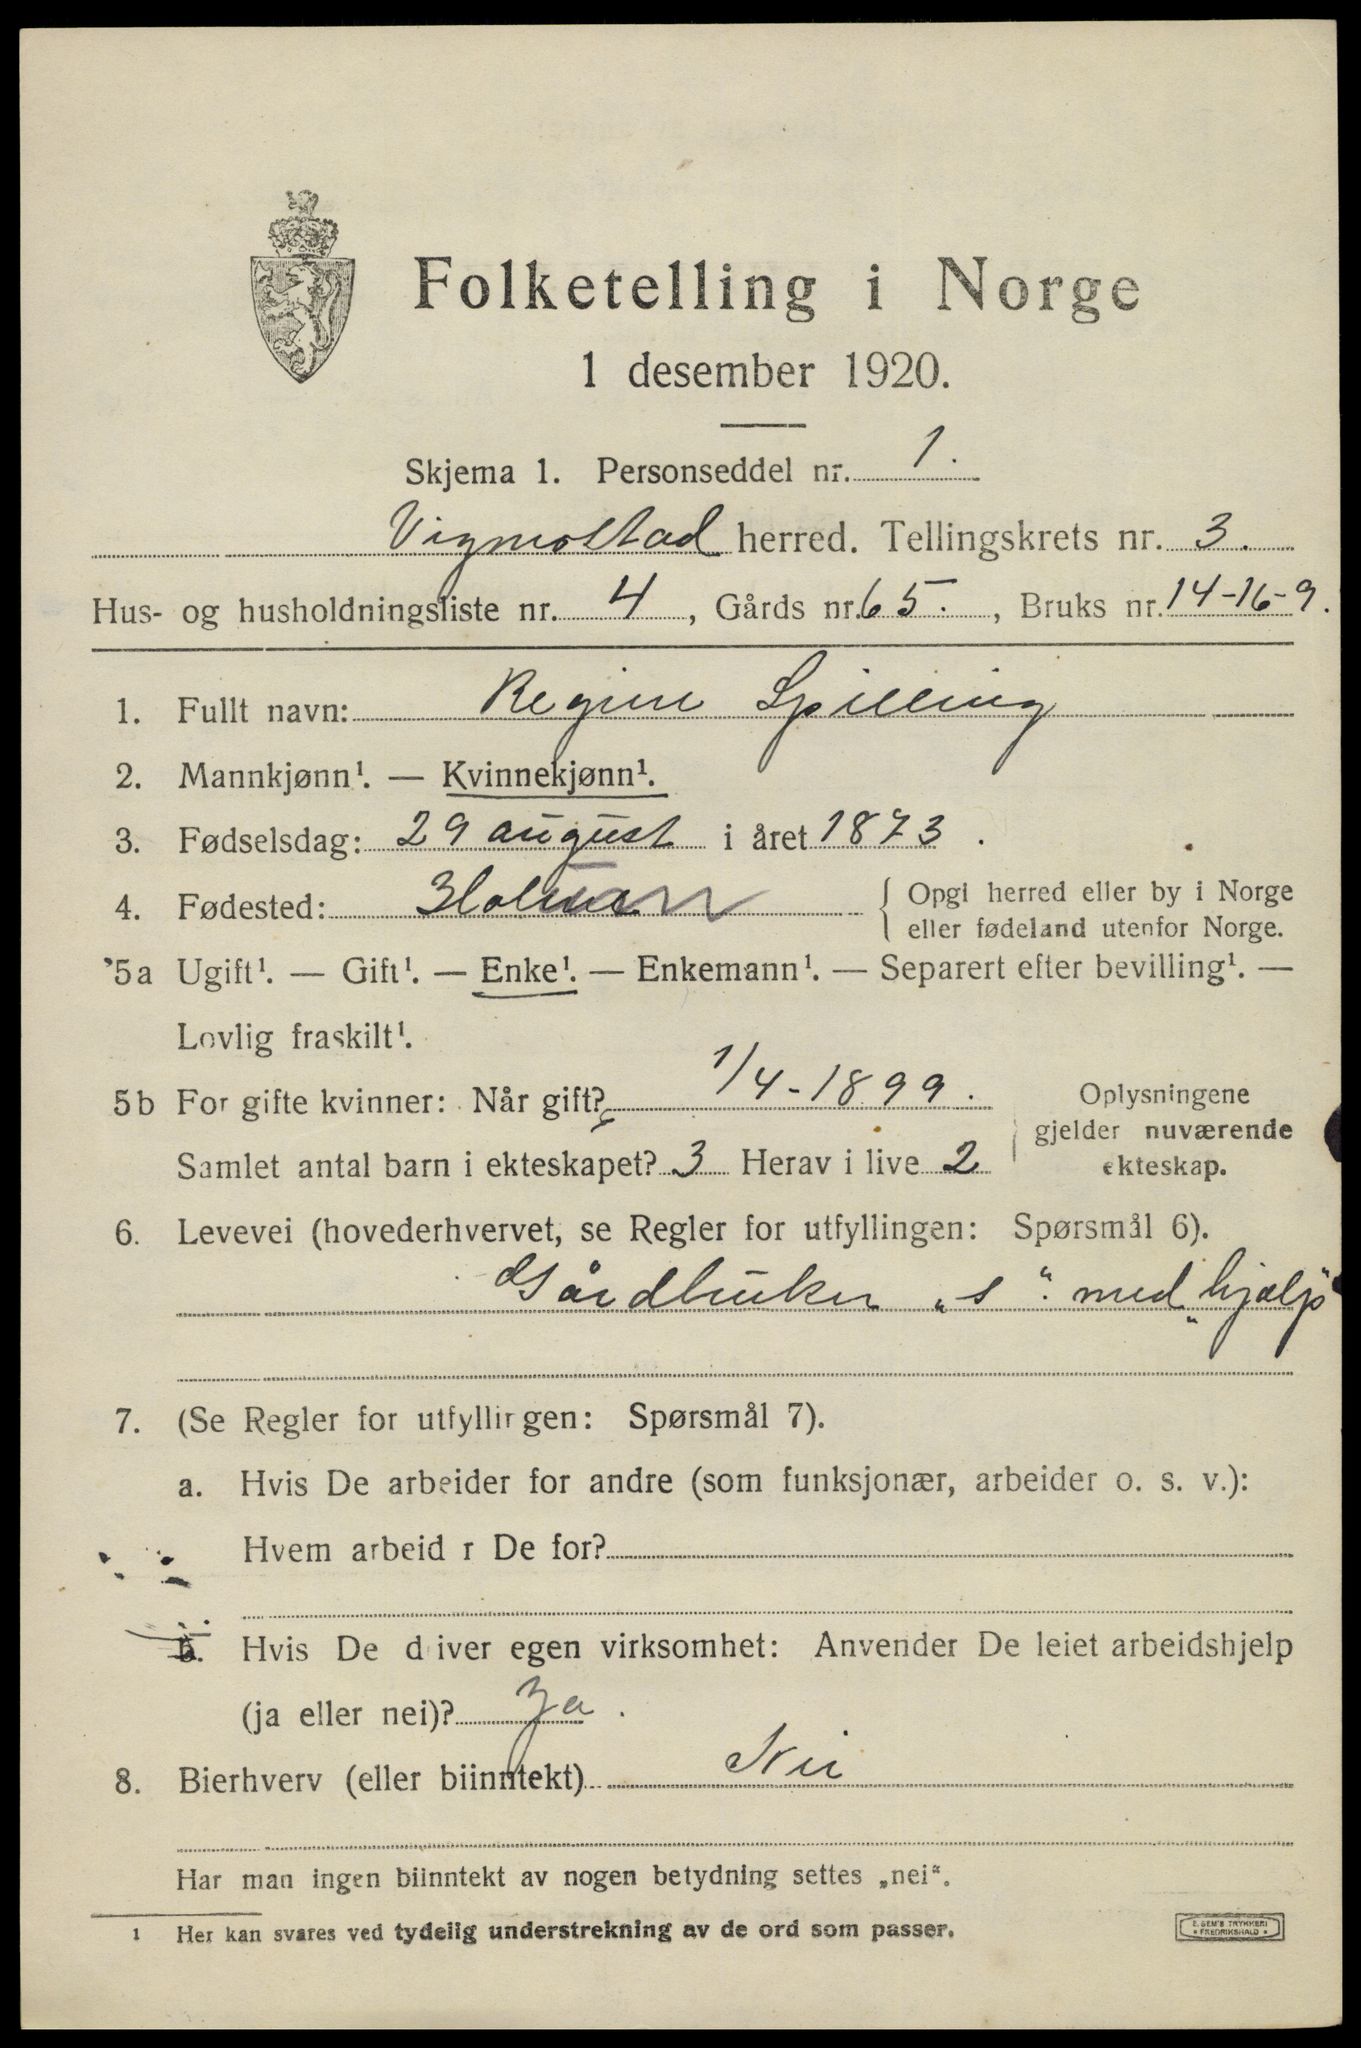 Folketelling i Norge
1 desember 1920.
Skjema 1. Personseddel nr. 1.
Vigmostad herred. Tellingskrets nr. 3.
Hus- og husholdningsliste nr. 4, Gårds nr. 65., Bruks nr. 14-16-9.
1. Fullt navn: Regine Spilling
2. Mannkjønn¹. — Kvinnekjønn¹.
3. Fødselsdag: 29 august i året 1873.
4. Fødested: Holum { Opgi herred eller by i Norge
eller fødeland utenfor Norge.
5a Ugift¹. — Gift¹. — Enke¹. — Enkemann¹. — Separert efter bevilling¹. —
Lovlig fraskilt¹.
5b For gifte kvinner: Når gift? 1/4-1899.
Samlet antal barn i ekteskapet? 3 Herav i live 2
Oplysningene
gjelder nuværende
ekteskap.
6. Levevei (hovederhvervet, se Regler for utfyllingen: Spørsmål 6).
Gårdbruker „s“. med „hjælp“
7. (Se Regler for utfyllingen: Spørsmål 7).
a. Hvis De arbeider for andre (som funksjonær, arbeider o. s. v.):
Hvem arbeid r De for?
b. Hvis De d iver egen virksomhet: Anvender De leiet arbeidshjelp
(ja eller nei)? Ja.
8. Bierhverv (eller biinntekt) Nei
Har man ingen biinntekt av nogen betydning settes „nei“.
1 Her kan svares ved tydelig understrekning av de ord som passer.
E. SEM'S TRYKKERI
• FREDRIKSHALD •